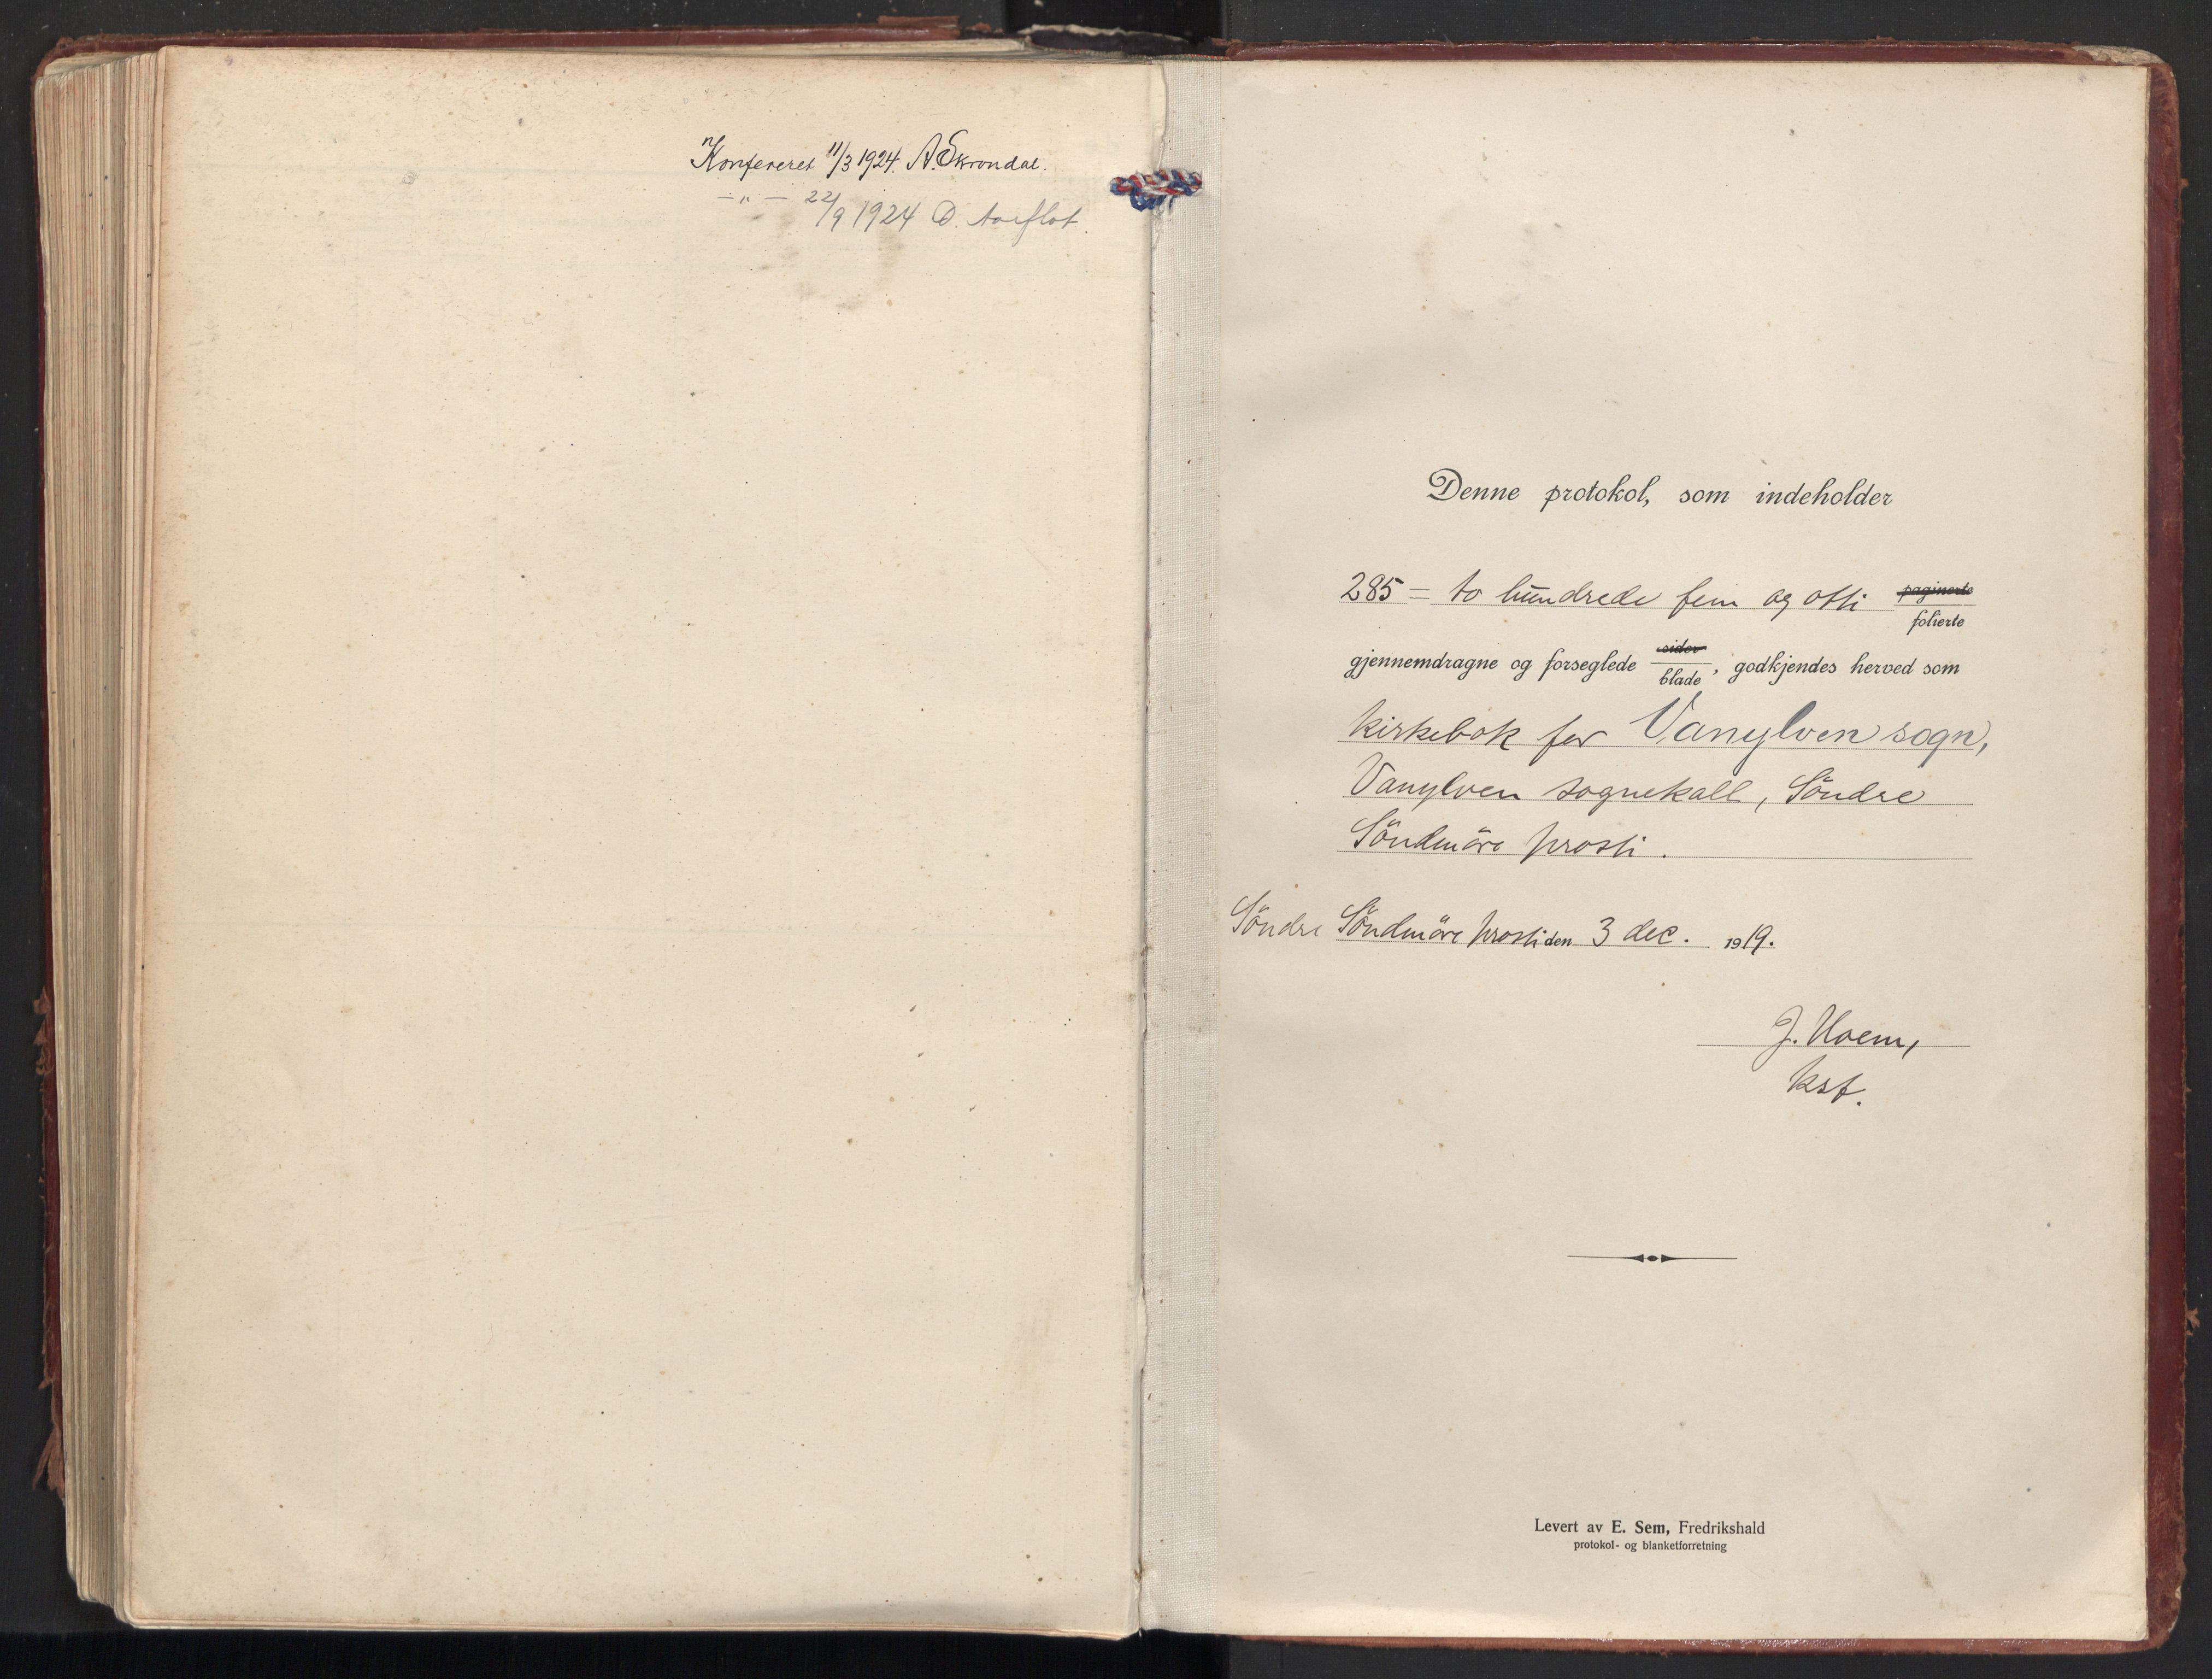 Konfereret 11/3 1924. A. Skrondal.
— " — 22/9 1924 D. Aarflot.
Denne protokol, som indeholder
285 = to hundrede fem og otti paginerte
folierte
gjennemdragne og forseglede sider
blade, godkjendes herved som
kirkebok for Vanylven sogn,
Vanylven sognekall, Söndre
Söndmöre prosti.
Söndre Söndmöre prosti den 3 dec. 1919.
J. Hoem,
kst.
Levert av E. Sem, Fredrikshald
protokol- og blanketforretning